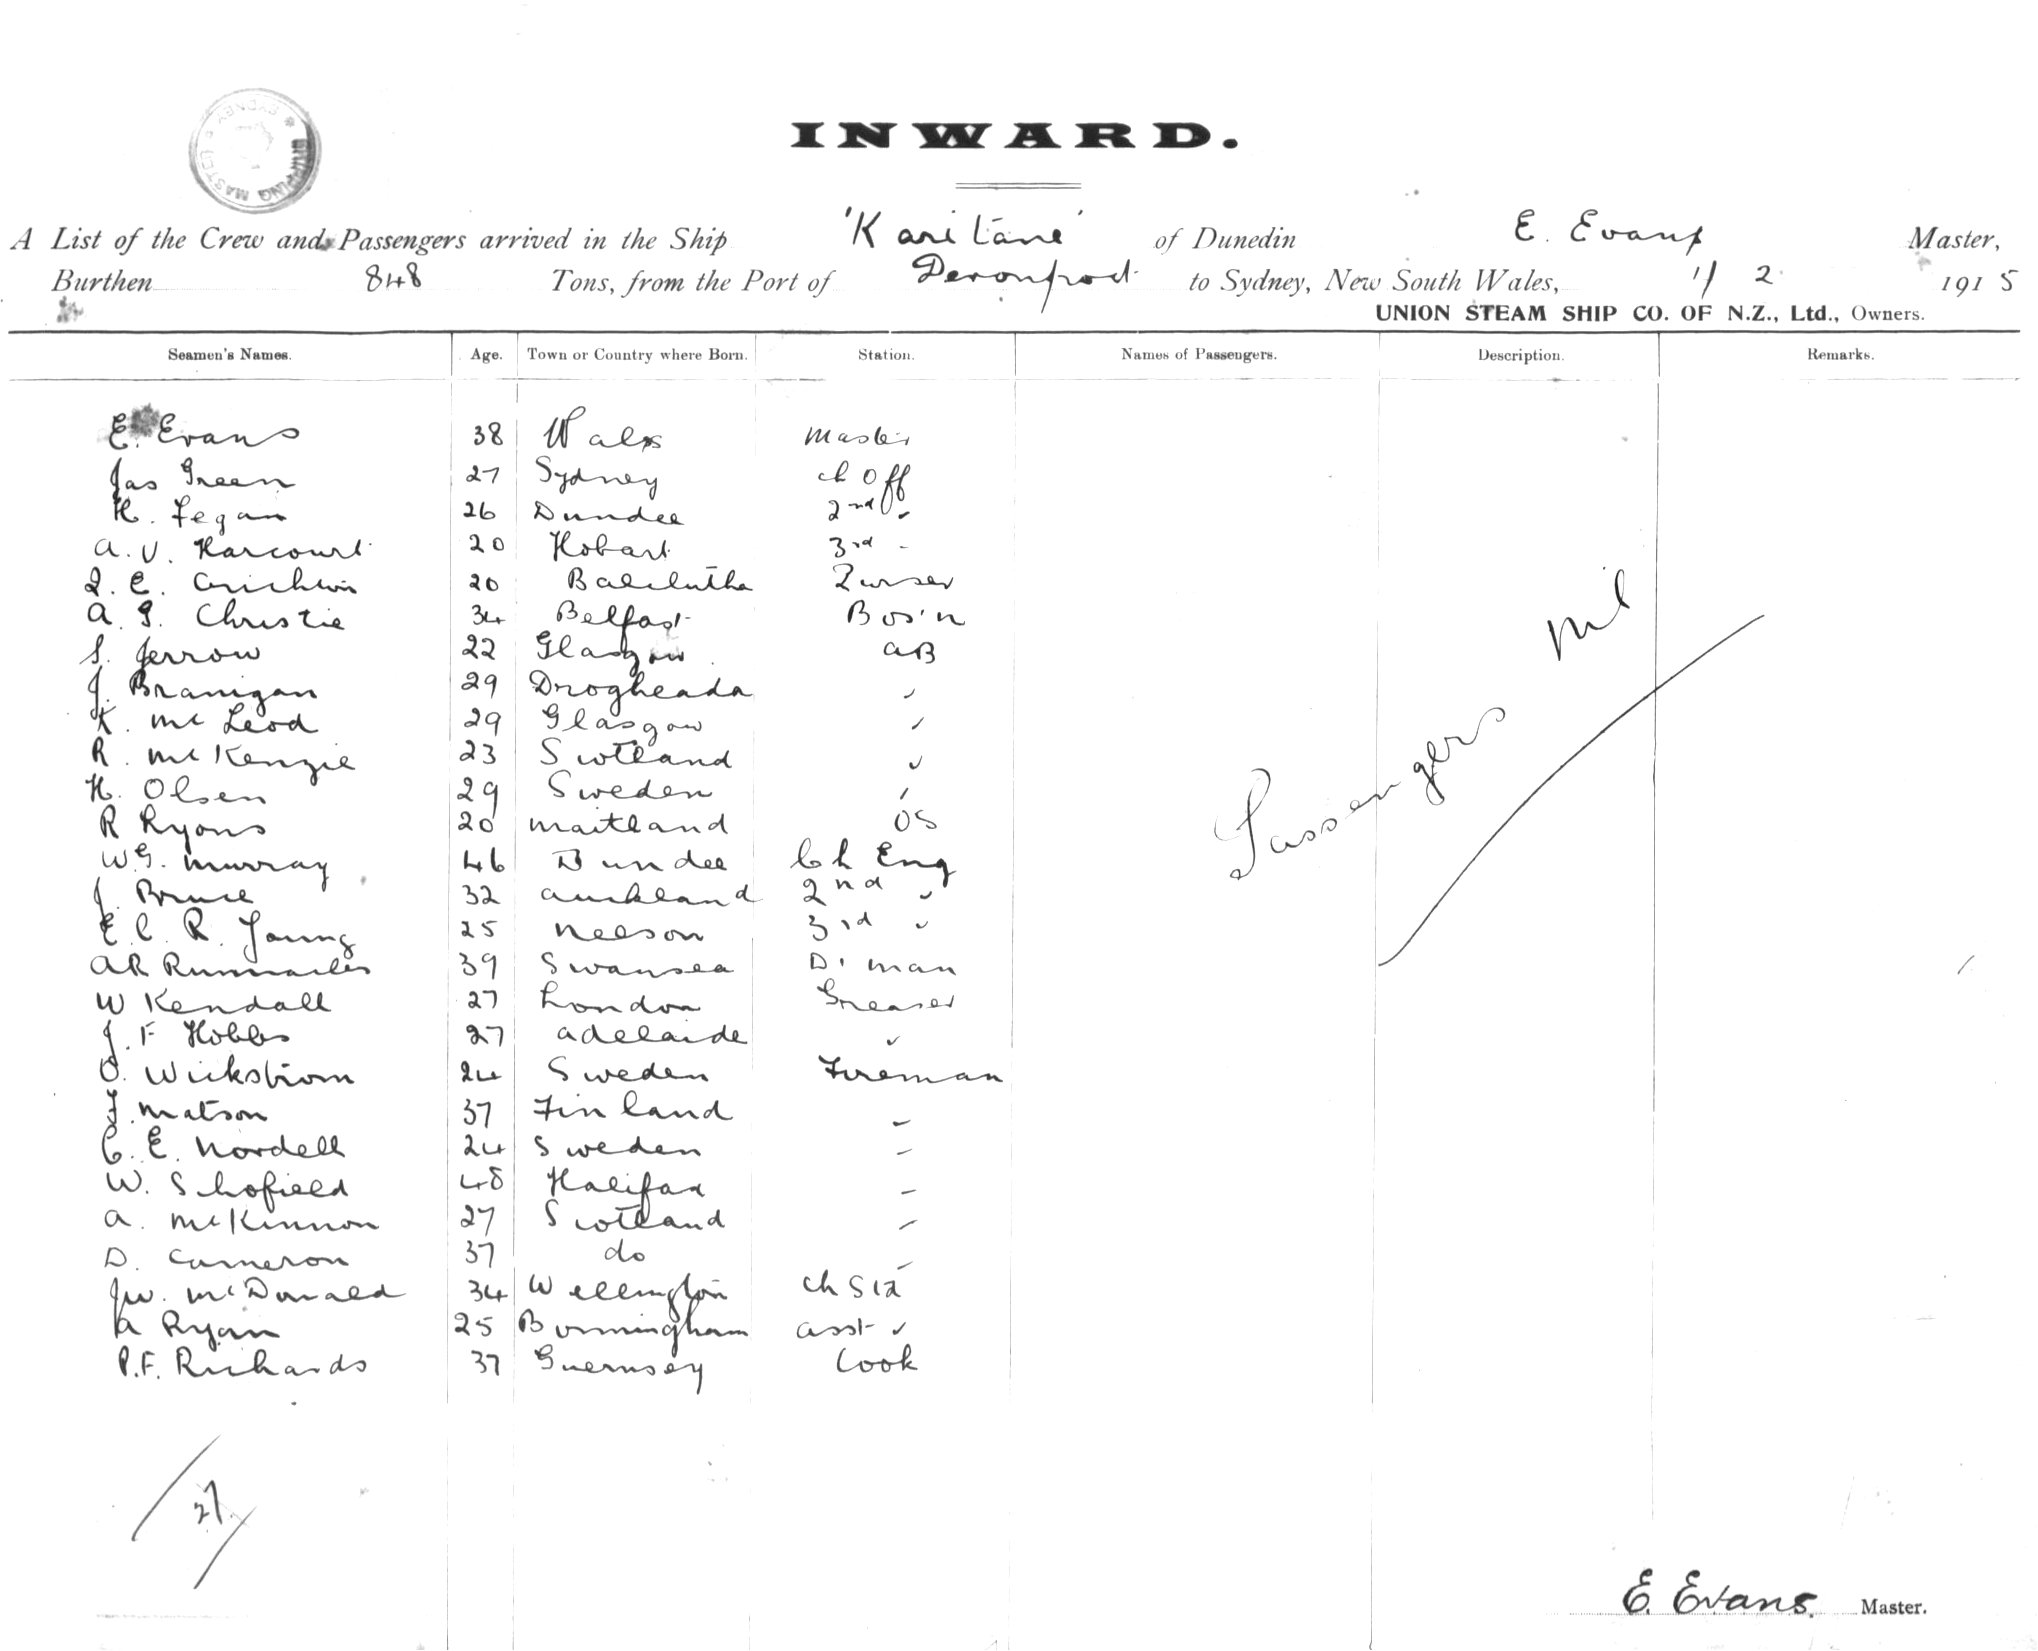 SHIPPING MASTER'S SYDNEY
INWARD.
A List of the Crew and Passengers arrived in the Ship 'Karitane' of Dunedin E. Evans Master,
Burthen 848 Tons, from the Port of Devonport to Sydney, New South Wales, 1/ 2 1915
UNION STEAM SHIP CO. OF N.Z., Ltd., Owners.
Seamen's Names. Age. Town or Country where Born. Station. Names of Passengers. Description. Remarks.
E. Evans 38 Wales Master
Jas Green 27 Sydney ch Off
H. Fegan 26 Dundee 2nd "
A. V. Harcourt 20 Hobart 3rd "
E. 20 Balclutha Purser
A. G. Christie 34 Belfast Bos'n
S. Jerrow 22 Glasgow AB
J. Branigan 29 Drogheada "
K. McLeod 29 Glasgow "
R. McKenzie 23 Scotland "
H. Olsen 29 Sweden "
R Ryons 20 Maitland OS
W.G. Murray 46 Dundee Ch Eng
J. Bruce 32 Auckland 2nd "
E. C. R. Young 25 Nelson 3rd "
A R 39 Swansea D. man
W Kendall 27 London Greaser
J. F Hobbs 27 Adelaide "
O. Wickstrom 24 Sweden Fireman
J. Matson 37 Finland "
C. E. Nordell 24 Sweden "
W. Schofield 48 Halifax "
A. McKinnon 27 Scotland "
D. Cameron 37 do "
JW. McDonald 34 Wellington ch Std
A Ryan 25 Birmingham asst "
P.F. Richards 37 Guernsey Cook
Passengers Nil
27
E. Evans. Master.